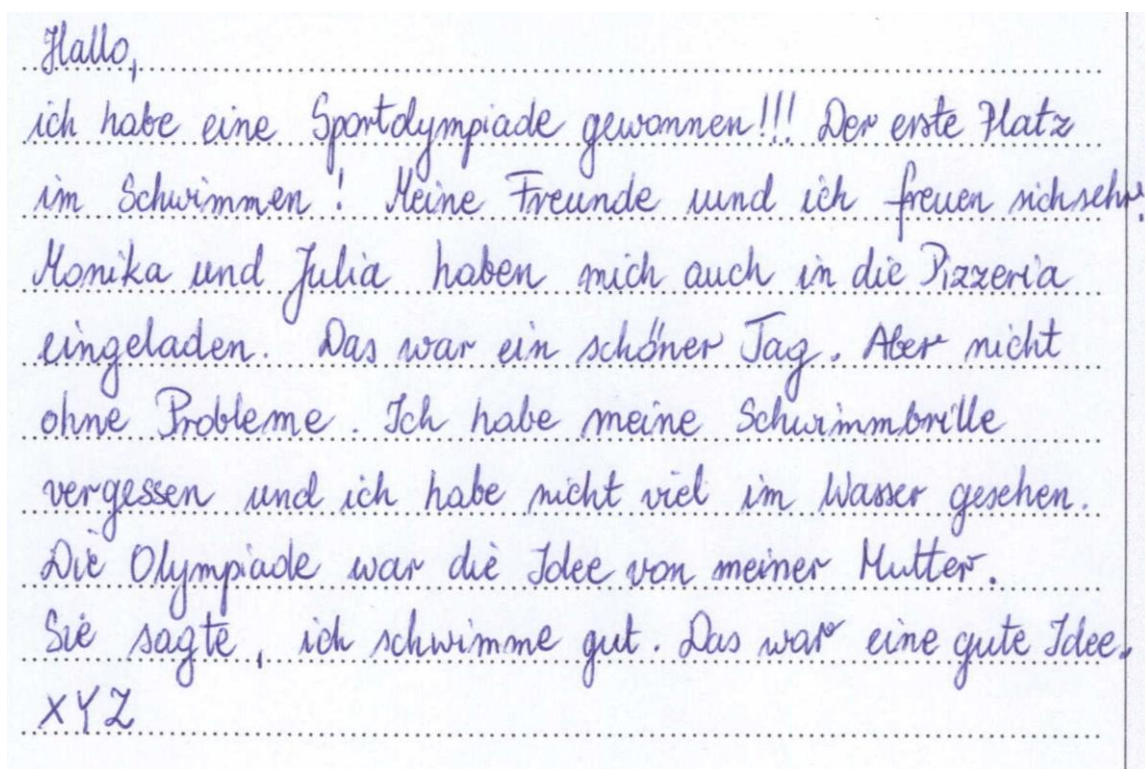 Hallo,
ich habe eine Sportolympiade gewonnen!!! Der erste Platz
im Schwimmen! Meine Freunde uund ich freuen sich sehr
Monika und Julia haben mich auch in die Pizzeria
eingeladen. Das war ein schöner Tag. Aber nicht
ohne Probleme. Ich habe meine Schwimmbrille
vergessen und ich habe nicht viel im Wasser gesehen.
Die Olympiade war die Idee von meiner Mutter.
Sie sagte, ich schwimme gut. Das war eine gute Idee.
XYZ